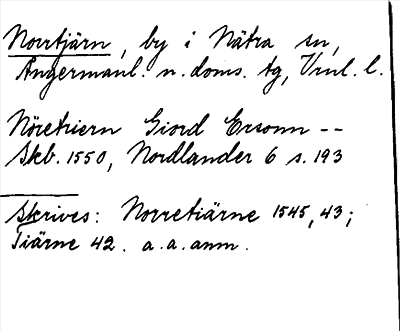 Norrtjärn, by i Nätra sn,
Ångermanl. n. doms. tg, Vrnl. l.
Nöretriern Giord Ersonn --
Skb. 1550, Nordlander 6 s. 193
Skrives: Norretiärne 1545, 43;
Tiärne 42. a. a. anm.